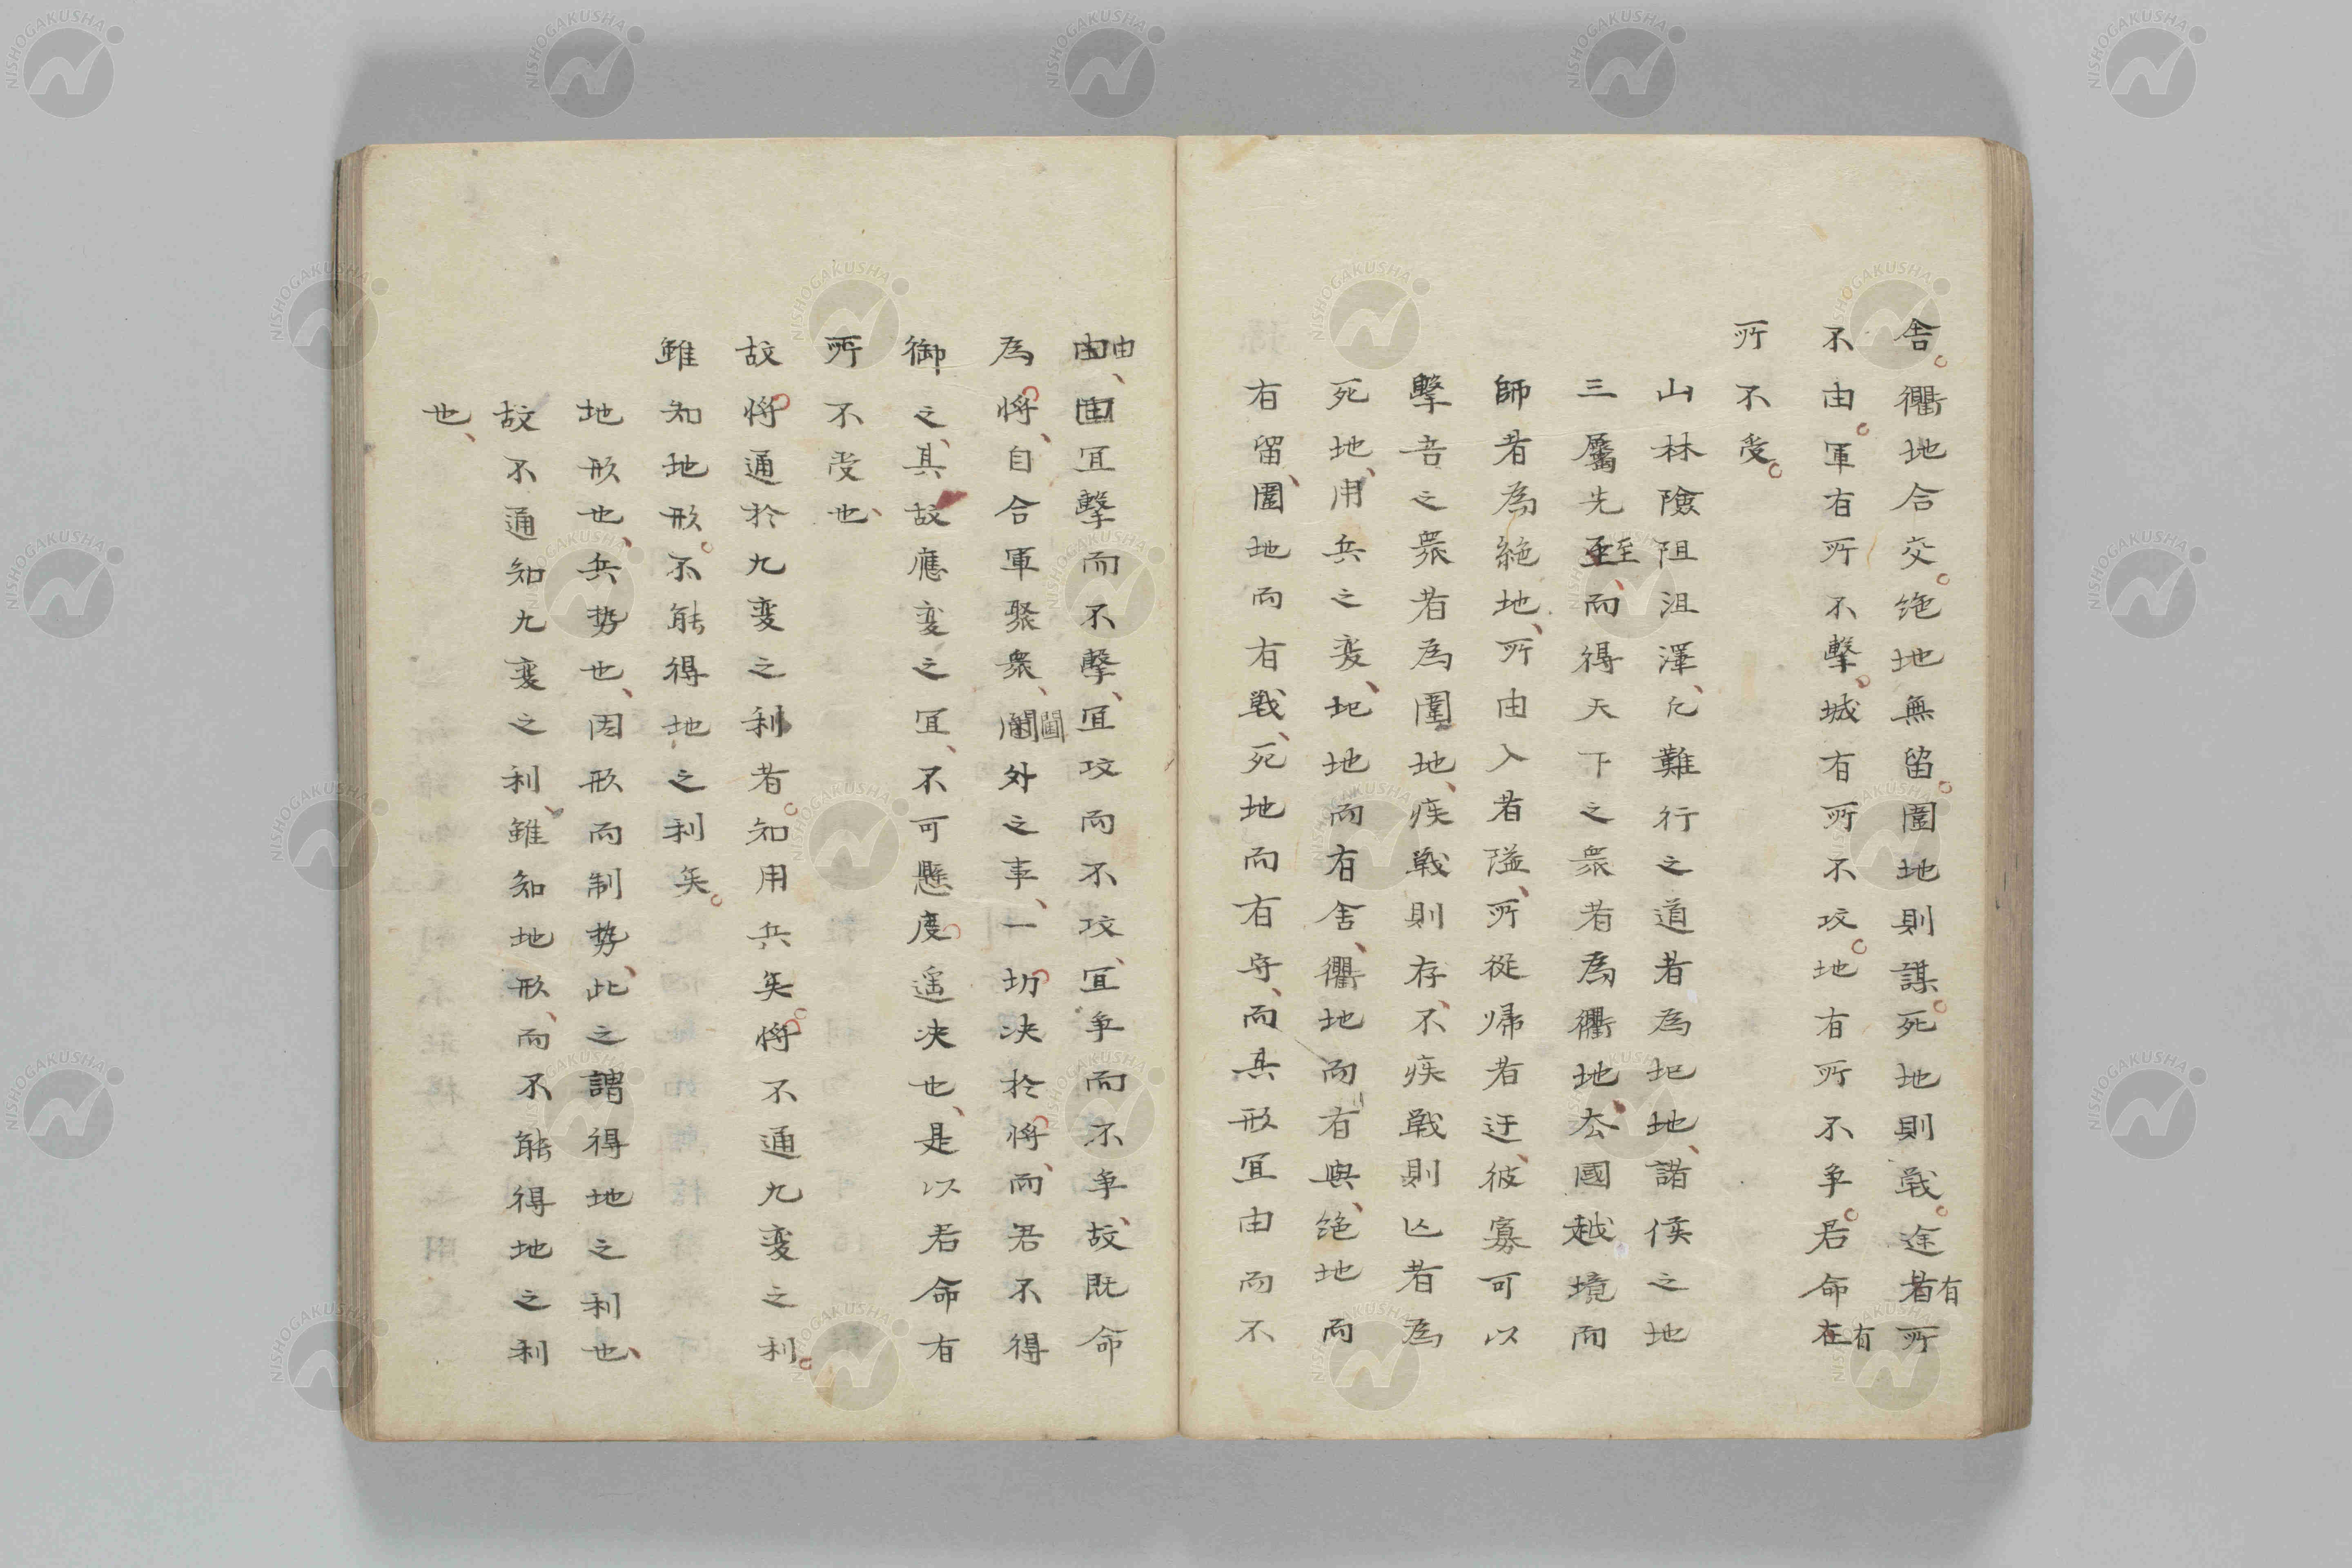 舎衢地合交絶地無留圍地則謀死地則戰途有所
不由軍有所不擊城有所不攻地有所不爭君命有
所不受
山林險阻沮澤凡難行之道者為圮地諸侯之地
三屬先至而得天下之衆者為衢地去國越境而
師者為絶地所由入者隘所從歸者迂彼寡可以
擊吾之衆者為圍地疾戰則存不疾戰則亡者為
死地用兵之変圮地而有舎衢地而有與絶地而
有留圍地而有戰死地而有守而其形宜由而不
由宜擊而不擊宜攻而不攻宜爭而不爭故既命
為將自合軍聚衆閫外之事一切决於將而君不得
御之其故應変之宜不可懸度遥决也是以君命有
所不受也
故將通於九変之利者知用兵矣將不通九変之利
雖知地形不能得地之利矣
地形也兵勢也因形而制勢此之謂得地之利也
故不通知九変之利雖知地形而不能得地之利
也
NISHOGAKUSHA